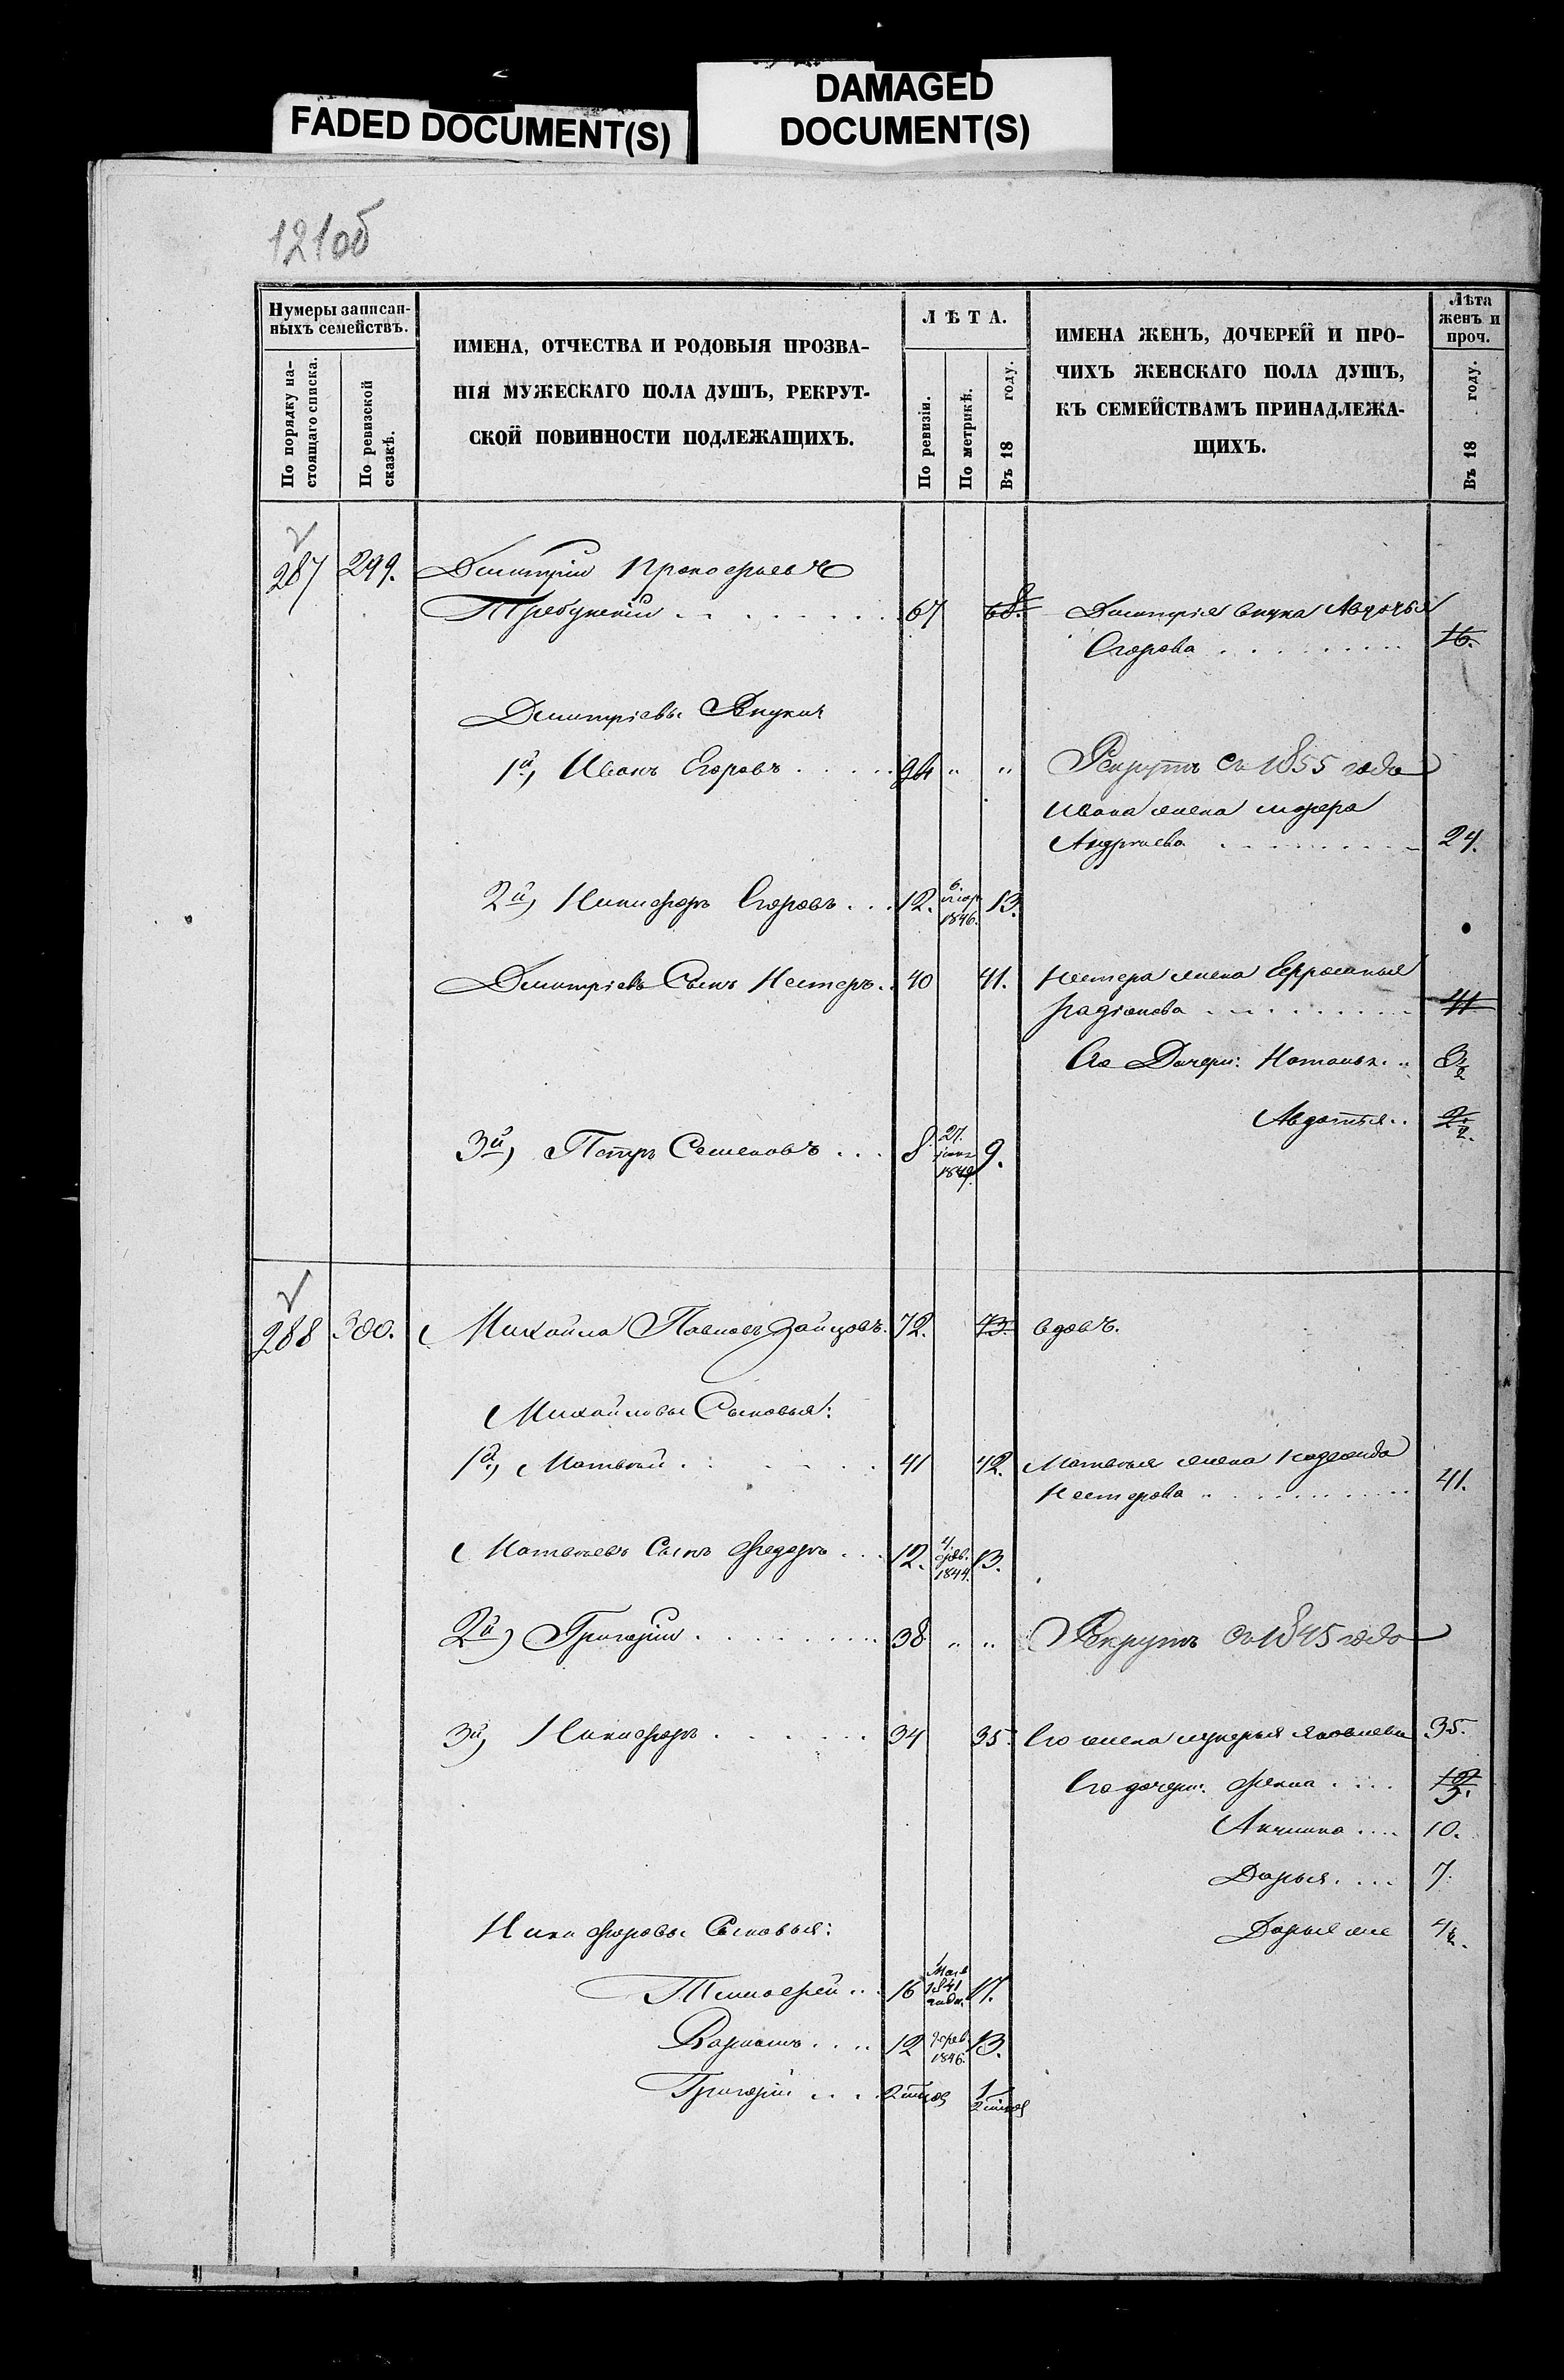 FADED DOCUMENT(S)
DAMAGED
DOCUMENT(S)
121об
Нумеры записан-
ныхъ семействъ.
По порядку на-
стоящаго списка.
По ревизской
сказкѣ.
ИМЕНА, ОТЧЕСТВА И РОДОВЫЯ ПРОЗВА-
НІЯ МУЖЕСКАГО ПОЛА ДУШЪ, РЕКРУТ-
СКОЙ ПОВИННОСТИ ПОДЛЕЖАЩИХЪ.
ЛѢТА.
По ревизіи.
По метрикѣ.
Въ 18 году.
ИМЕНА ЖЕНЪ, ДОЧЕРЕЙ И ПРО-
ЧИХЪ ЖЕНСКАГО ПОЛА ДУШЪ,
КЪ СЕМЕЙСТВАМЪ ПРИНАДЛЕЖА-
ЩИХЪ.
Лѣта
женъ и
проч.
Въ 18 году.
287 299. Дмитрій Прокофьевъ
67 68. Дмитрія внука Авдотья
Егорова 16.
Дмитріевы Внуки
1й, Иванъ Егоровъ 24 " " Рекрутъ съ 1855 года
Ивана жена
Андреева 24.
2й, Никифоръ Егоровъ 12. 6. 1846. 13.
Дмитріевъ Сынъ Нестеръ 40 41. Нестера жена Ефросинья
Радіонова 41
Его Дочери: Наталья
Авдотья
3й, Петръ Семеновъ 8. 27. 9.
288 300. Михайла Павловъ Зайцовъ. 72. 73. вдовъ.
Михайловы Сыновья:
1й, Матвей 41 42. Матвея жена
Нестерова 41.
Матвеевъ Сынъ Федоръ 12. 4. фев. 1844. 13.
2й, Григорій 38 " " Рекрутъ съ 1845 года
3й, Никифоръ 34 35. Его жена Лукерья Яковлева 35.
Его дочери: Фекла
Акулина 10.
Дарья 7.
Дарья же
Никифоровы Сыновья:
Тимофей 16 1841 17.
12 фев. 1846. 13.
Григорій